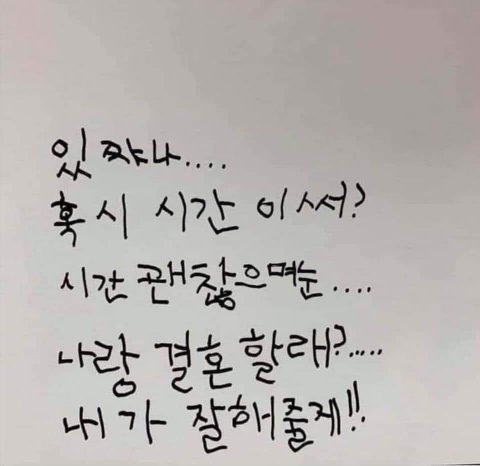 있쨔나....
혹시 시간 이써?
시간 괜찮으며눈....
나랑 결혼할래?.....
내가 잘해줄제!!